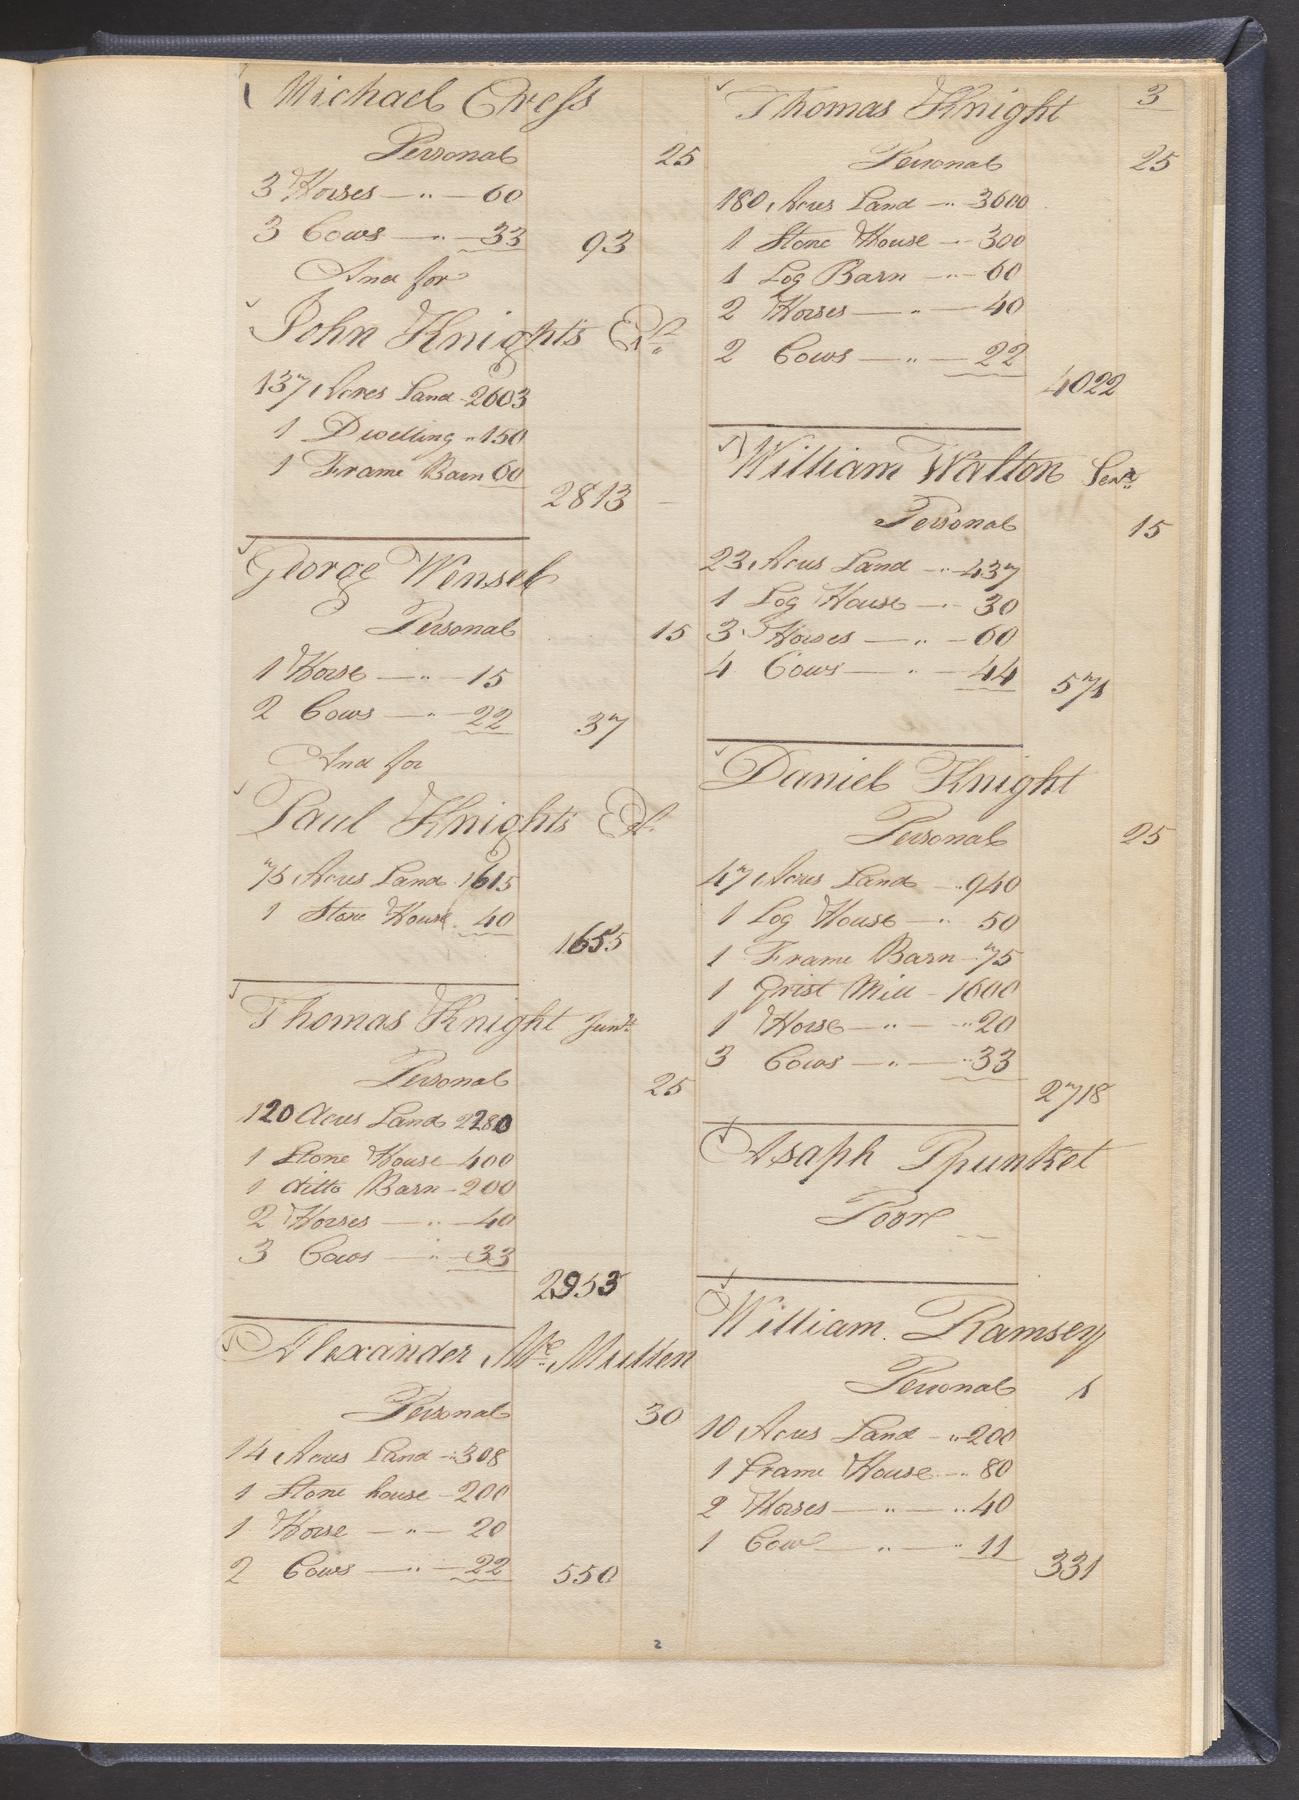 Michael Cress
Personal 25
3 Horses — " — 60
3 Cows — " — 33 93
And for
John Knights Est.
137 Acres Land - 2603
1 Dwelling " 150
1 Frame Barn 60
2813 —
George Wensel
Personal 15
1 Horse — " — 15
2 Cows — " — 22 37
And for
Paul Knights Est.
75 Acres Land . 1615
1 Stone House . 40
1655
Thomas Knight Junr.
Personal 25
120 Acres Land 2280
1 Stone House - 400
1 ditto Barn - 200
2 Horses — " — 40
3 Cows — " — 33
2953
Alexander Mc. Mullen
Personal 30
14 Acres Land - " 308
1 Stone house - 200
1 Horse — " — 20
2 Cows — " — 22 550
3
Thomas Knight
Personal 25
180 Acres Land - " 3600
1 Stone House - " - 300
1 Log Barn - " - 60
2 Horses — " — 40
2 Cows — " — 22
4022
William Walton Senr.
Personal 15
23 Acres Land - " 437
1 Log House - " - 30
3 Horses — " — 60
4 Cows — " — 44 571
Daniel Knight
Personal 25
47 Acres Land - " 940
1 Log House - " 50
1 Frame Barn - 75
1 Grist Mill - 1600
1 Horse — " — " 20
3 Cows — " — " 33
2718
Asaph Spunket
Poor
William Ramsey
Personal 1
10 Acres Land - " 200
1 Frame House - " 80
2 Horses — " — " 40
1 Cow — " — " 11 331
2